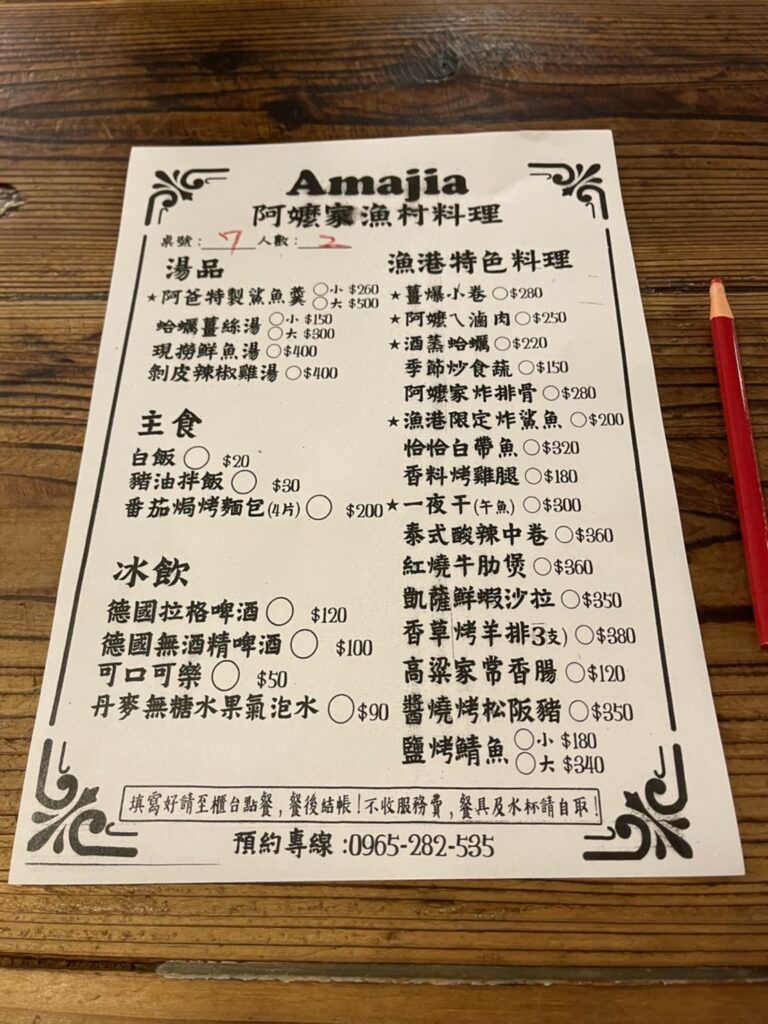 Amajia
阿嬤家漁村料理
桌號：7 人數：2
湯品
★阿爸特製鯊魚羹 ○小 $260
○大 $500
蛤蠣薑絲湯 ○小 $150
○大 $300
現撈鮮魚湯 ○$400
剝皮辣椒雞湯 ○$400
主食
白飯 ○ $20
豬油拌飯 ○ $30
番茄焗烤麵包(4片) ○ $200
冰飲
德國拉格啤酒 ○ $120
德國無酒精啤酒 ○ $100
可口可樂 ○ $50
丹麥無糖水果氣泡水 ○$90
漁港特色料理
★薑爆小卷 ○$280
★阿嬤ㄟ滷肉 ○$250
★酒蒸蛤蠣 ○$220
季節炒食蔬 ○$150
阿嬤家炸排骨 ○$280
★漁港限定炸鯊魚 ○$200
恰恰白帶魚 ○$320
香料烤雞腿 ○$180
★一夜干(午魚) ○$300
泰式酸辣中卷 ○$360
紅燒牛肋煲 ○$360
凱薩鮮蝦沙拉 ○$350
香草烤羊排3支) ○$380
高粱家常香腸 ○$120
醬燒烤松阪豬 ○$350
鹽烤鯖魚 ○小 $180
○大 $340
填寫好請至櫃台點餐，餐後結帳！不收服務費，餐具及水杯請自取！
預約專線：0965-282-535